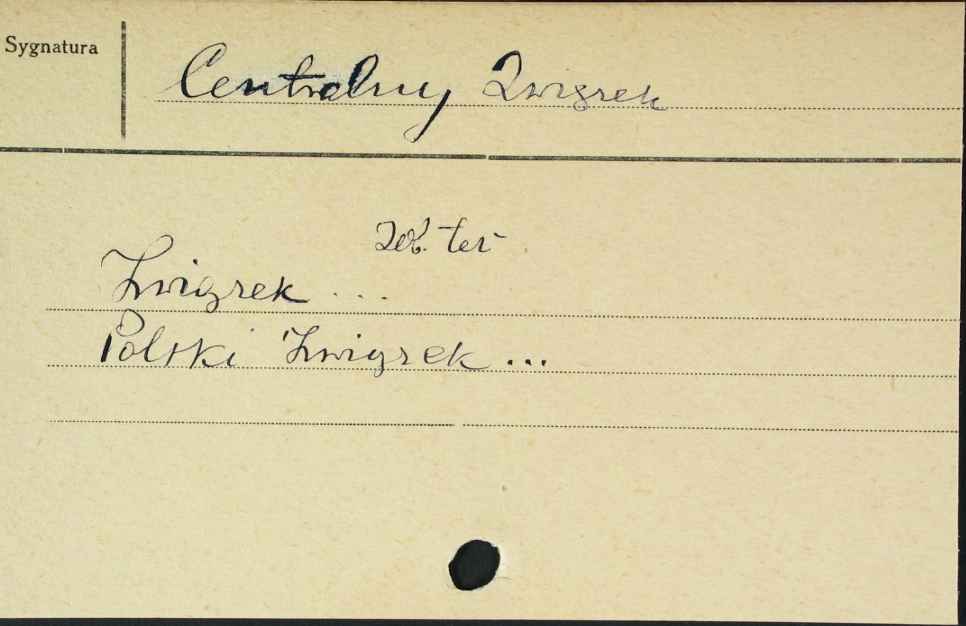 Sygnatura
Centralny Związek
zob. też
Związek ...
Polski Związek ...